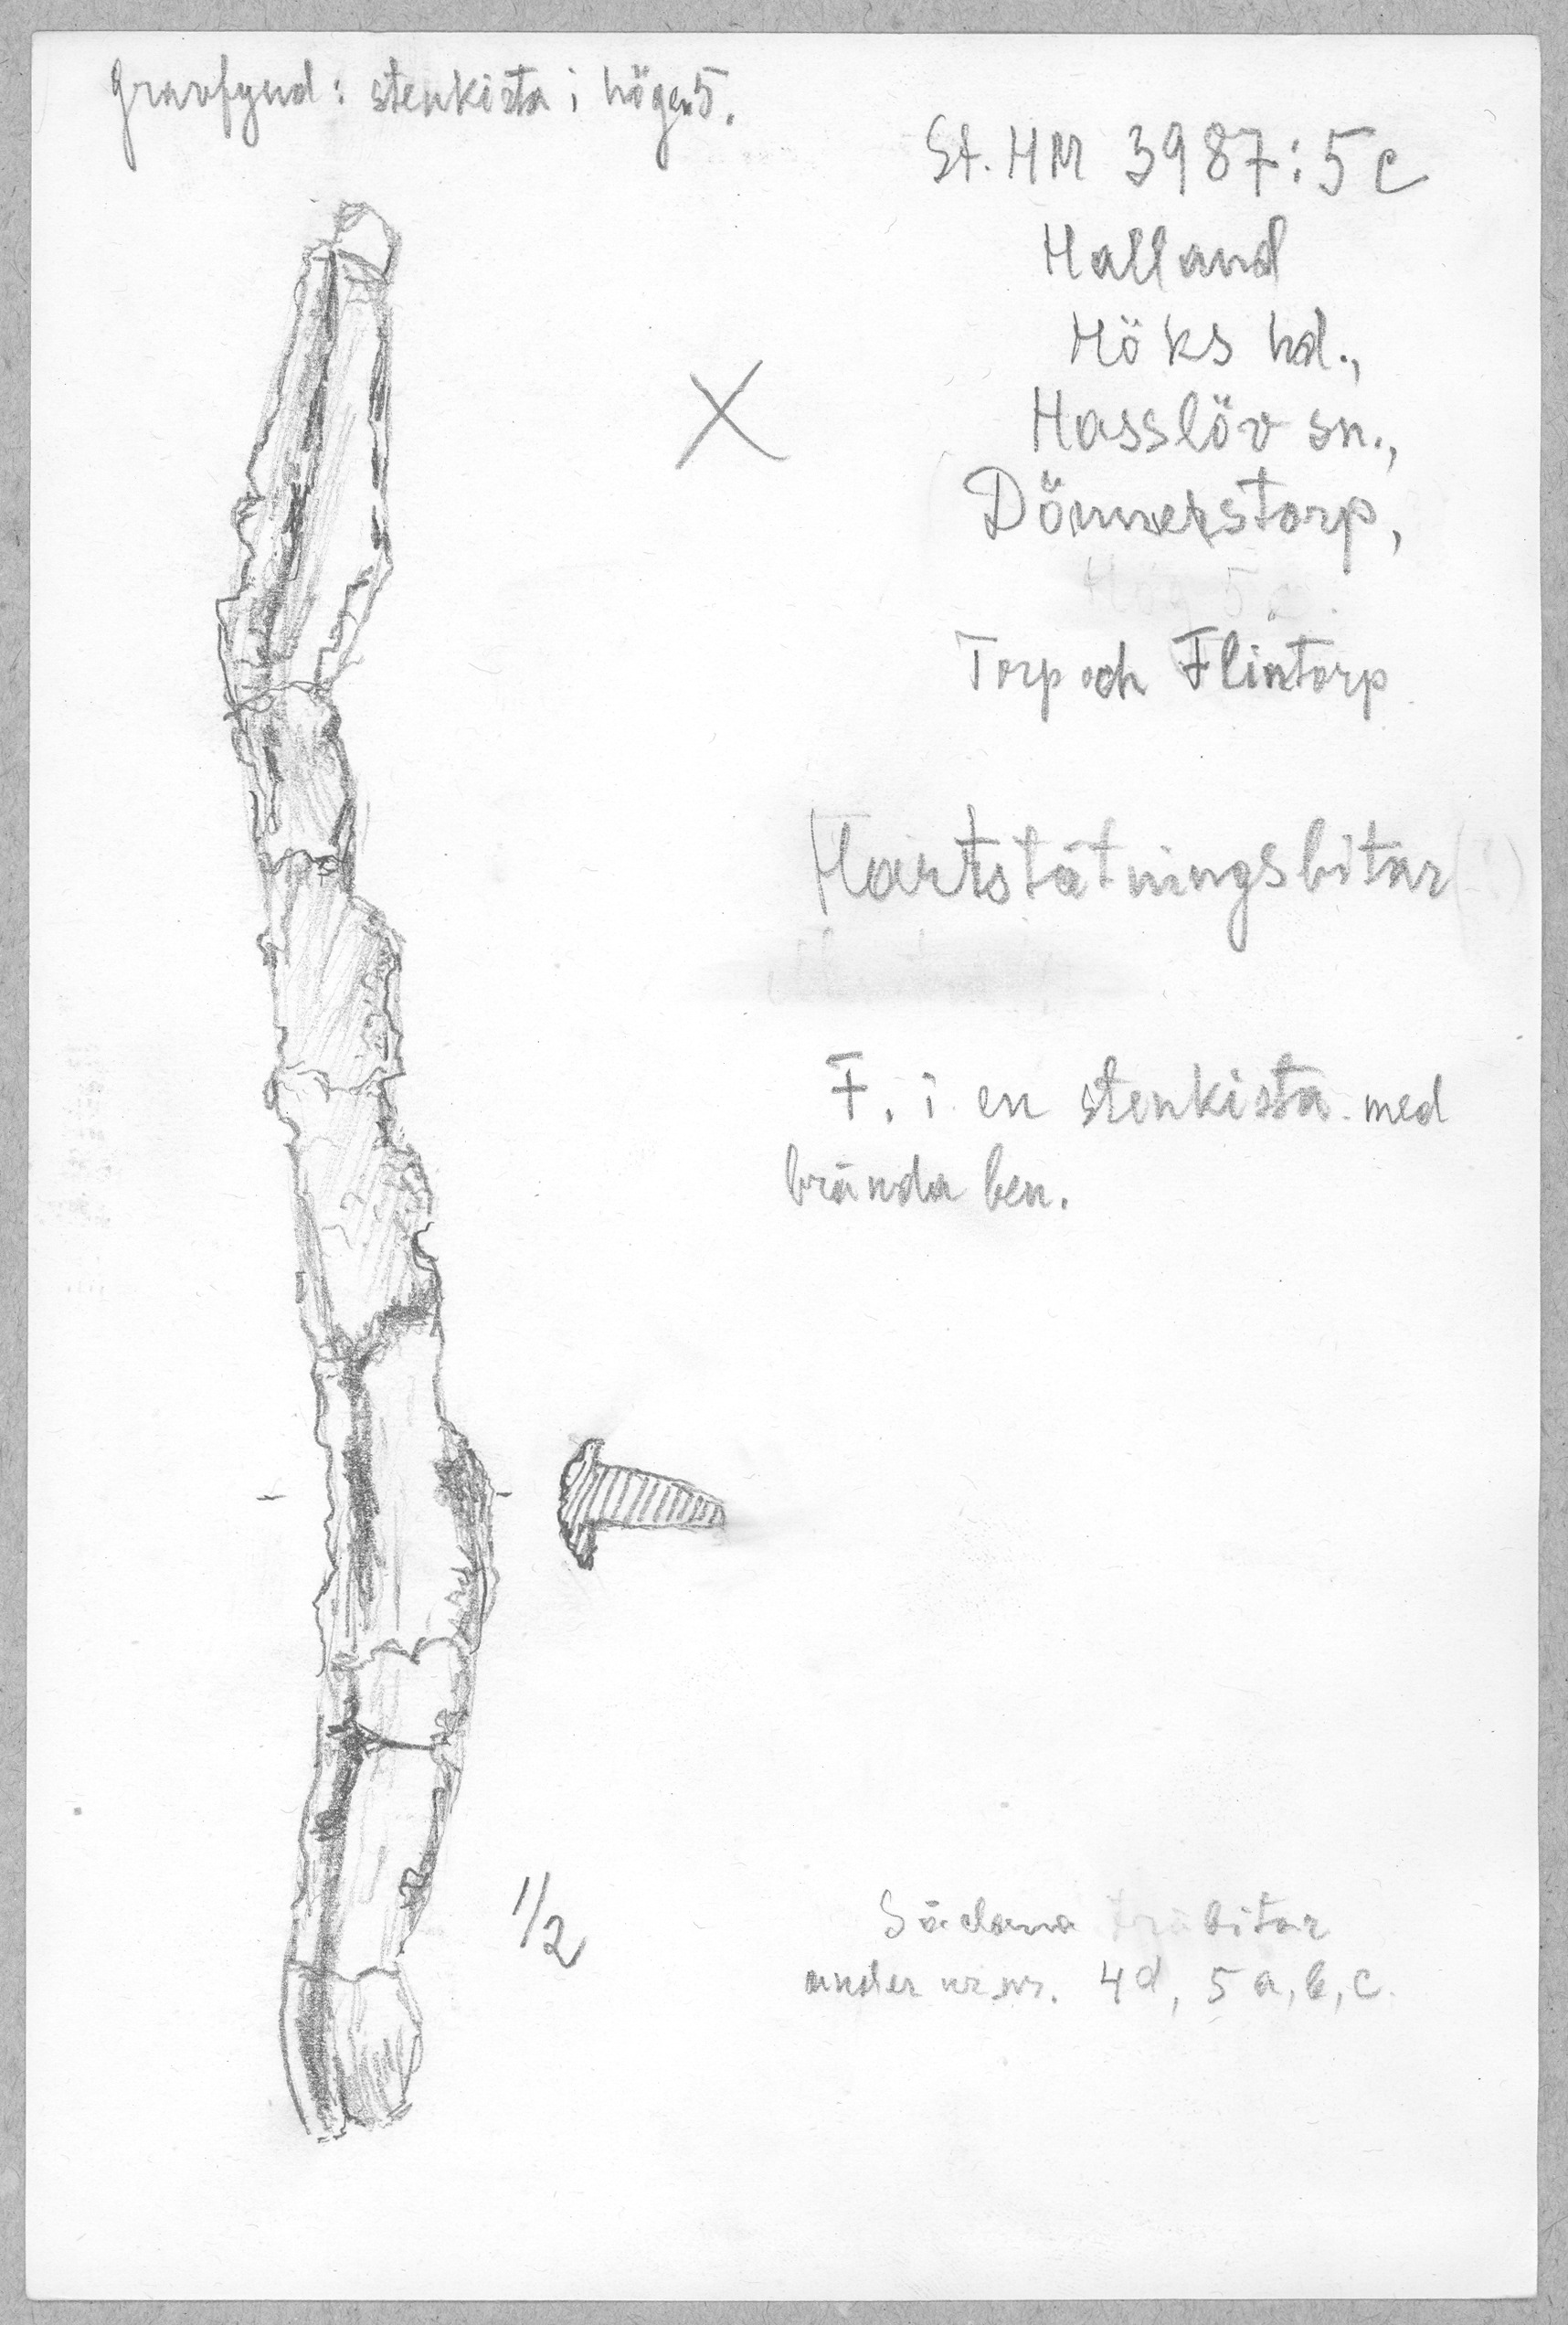 Gravfynd: stenkista i högen 5.
St. HM 3987:5c
Halland
Höks hd.,
Hasslöv sn.,
Dömmerstorp,
Hög 5
Torp och Flintorp
Hartstätningsbitar (?)
F. i en stenkista med
brända ben.
1/2
Sådana träbitar
under nr.nr. 4d, 5a, b, c.